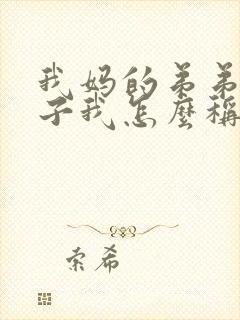 我妈的弟弟
子我怎麼稱
索希